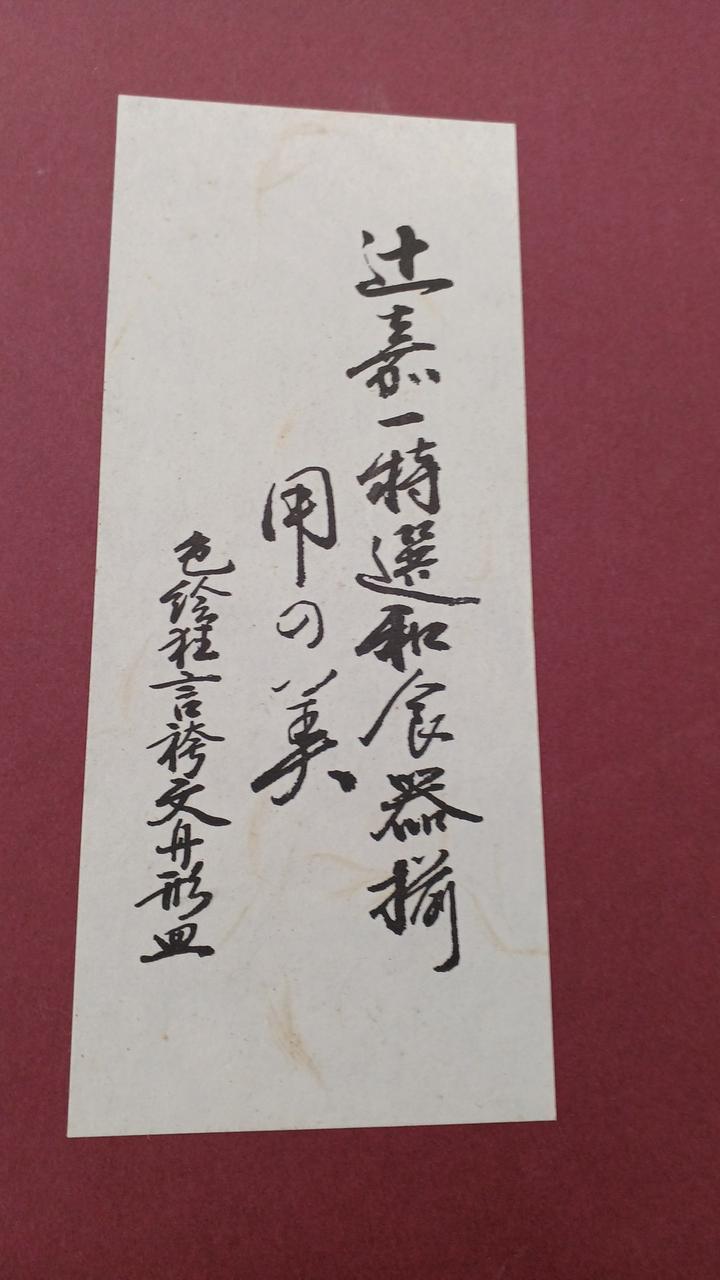 辻嘉一特選和食器揃
用の美
色絵狂言袴文舟形皿